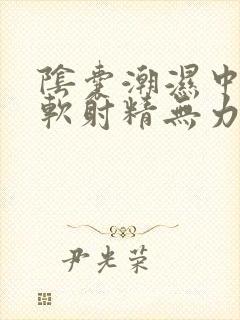 陰囊潮濕中
軟射精無力
尹光荣